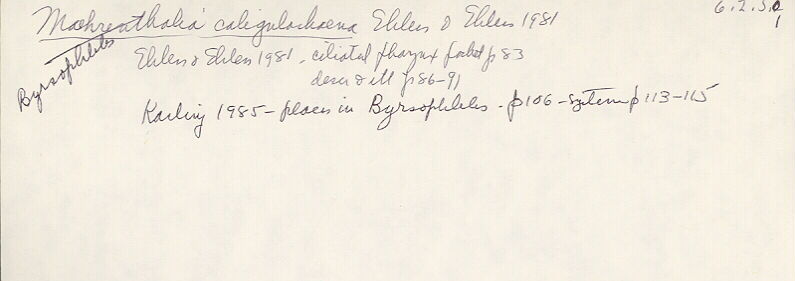 Maehrenthalia caligulachaena Ehlers & Ehlers 1981 6.2.3.2
1
Byrsophlebs
Ehlers & Ehlers 1981, ciliated pharynx pocket p 83
descr & ill p 86-91
Karling 1985 - places in Byrsophlebs - p 106 - system p 113-115